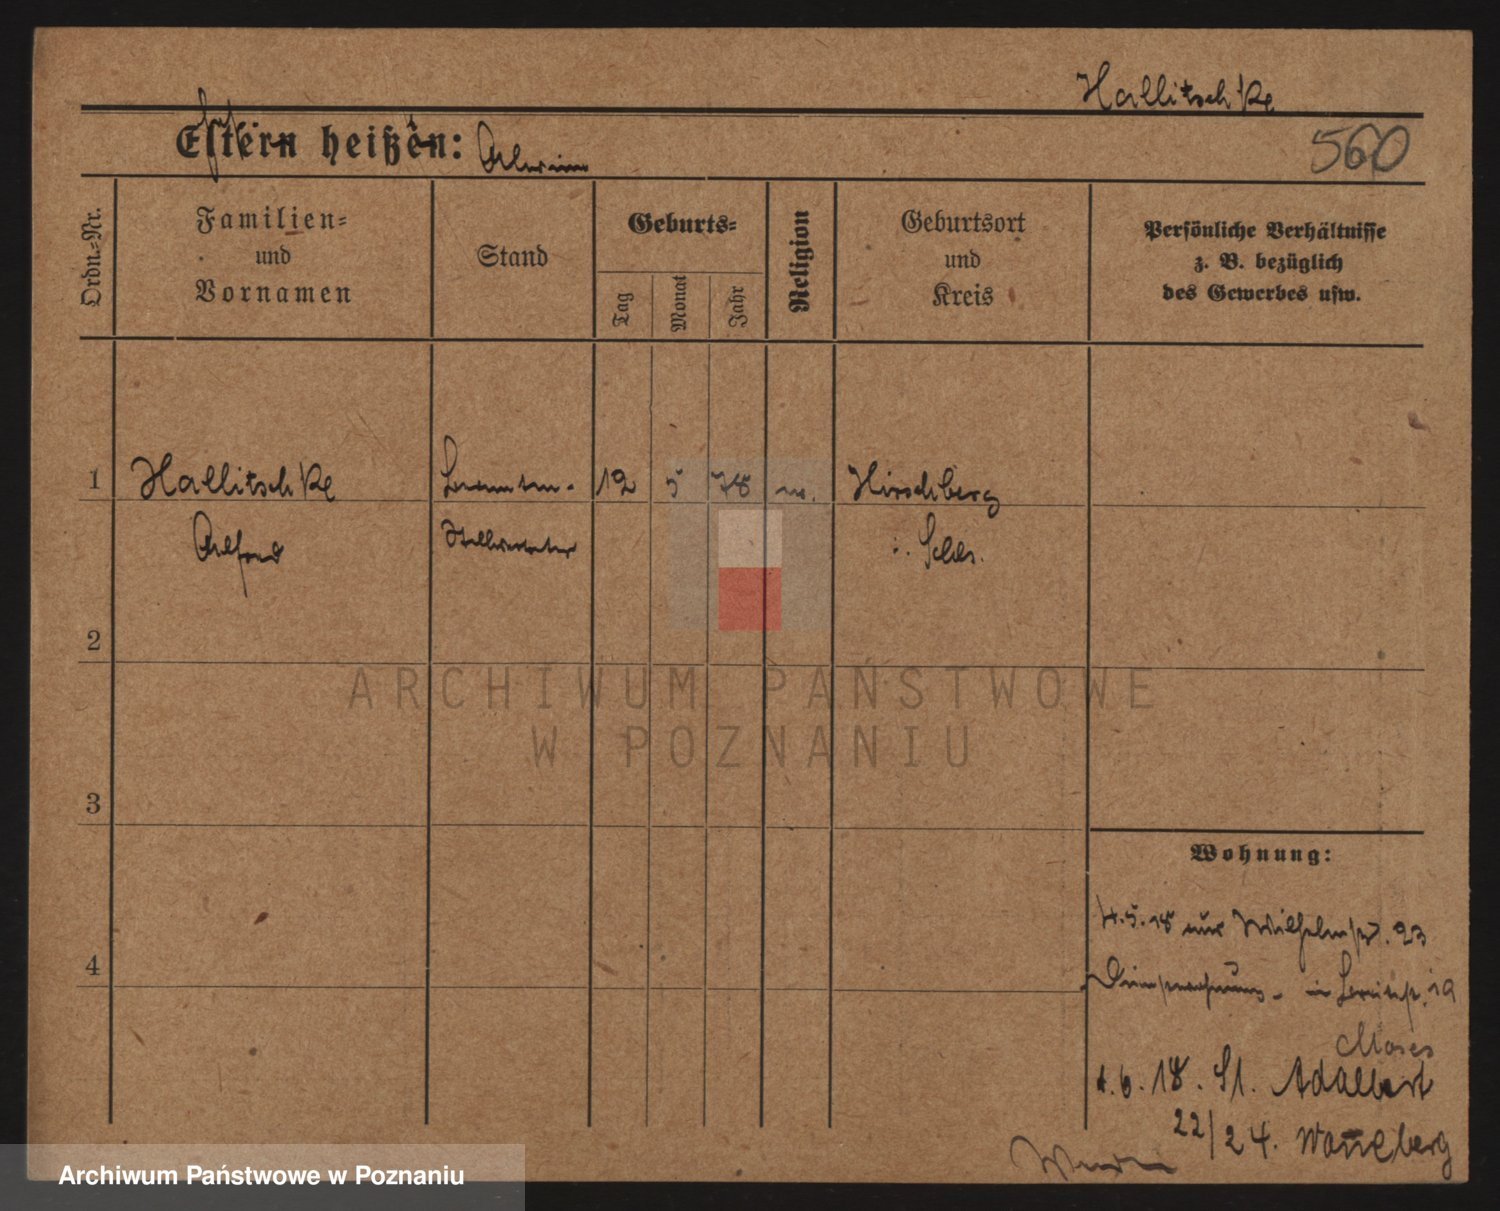 Hallitschke
Eltern heißen:
560
Ordn.-Nr.
Familien-
und
Vornamen
Stand
Geburts-
Tag
Monat
Jahr
Religion
Geburtsort
und
Kreis
Persönliche Verhältnisse
z. B. bezüglich
des Gewerbes usw.
1 Hallitschke 12 5 78 Hirschberg
Alfred Schles.
2
3
4
Wohnung:
4.5.18 Wilhelmstr. 23
Moses
1.6.18. St. Adalbert
22/24.
ARCHIWUM PAŃSTWOWE
W POZNANIU
Archiwum Państwowe w Poznaniu